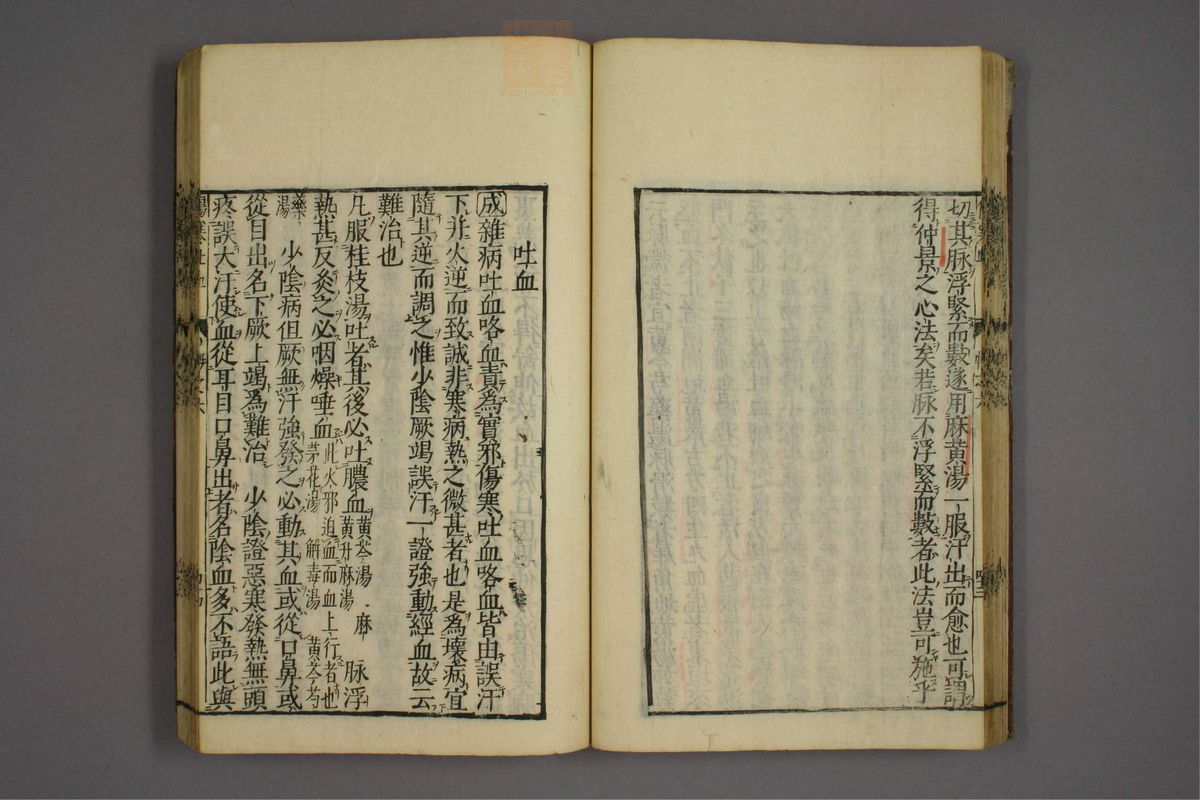 切其脉浮緊而數遂用麻黄湯一服汗出而愈也可謂
得仲景之心法矣若脉不浮緊而數者此法豈可施乎
吐血
成雜病吐血咯血責為實邪傷寒吐血咯血皆由誤汗
下并火逆而致誠非寒病熱之微甚者也是為壞病宜
隨其逆而調之惟少陰厥竭誤汗一證強動經血故云
難治也
凡服桂枝湯吐者其後必吐膿血黄芩湯 麻黄升麻湯 脉浮
熱甚反灸之必咽燥唾血此火邪迫血而血上行者也茅花湯 解毒湯 黄芩芍
藥湯 少陰病但厥無汗強發之必動其血或從口鼻或
從目出名下厥上竭為難治 少陰證惡寒發熱無頭
疼誤大汗使血從耳目口鼻出者名陰血多不語此與